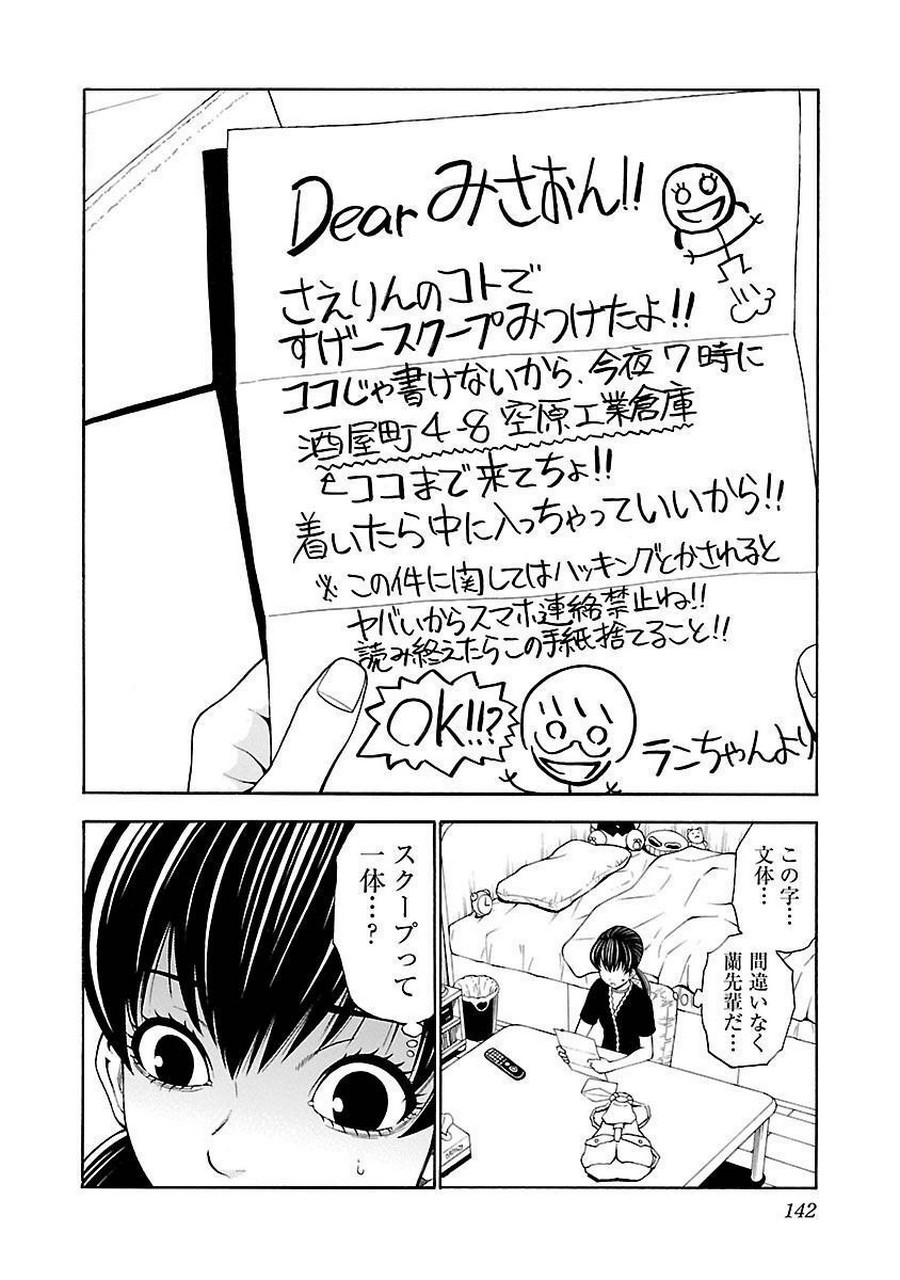 Dear みさおん!!
さえりんのコトで
すげースクープみつけたよ!!
ココじゃ書けないから、今夜7時に
酒屋町4-8 空原工業倉庫
↑ココまで来てちょ!!
着いたら中に入っちゃっていいから!!
※この件に関してはハッキングとかされると
ヤバいからスマホ連絡禁止ね!!
読み終えたらこの手紙捨てること!!
OK!!?
ランちゃんより
この字…
文体…
間違いなく
蘭先輩だ…
スクープって
一体…?
142